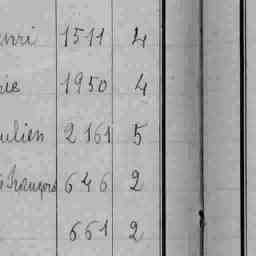 enri 1511 4
rie 1950 4
ulien 2161 5
François 646 2
661 2